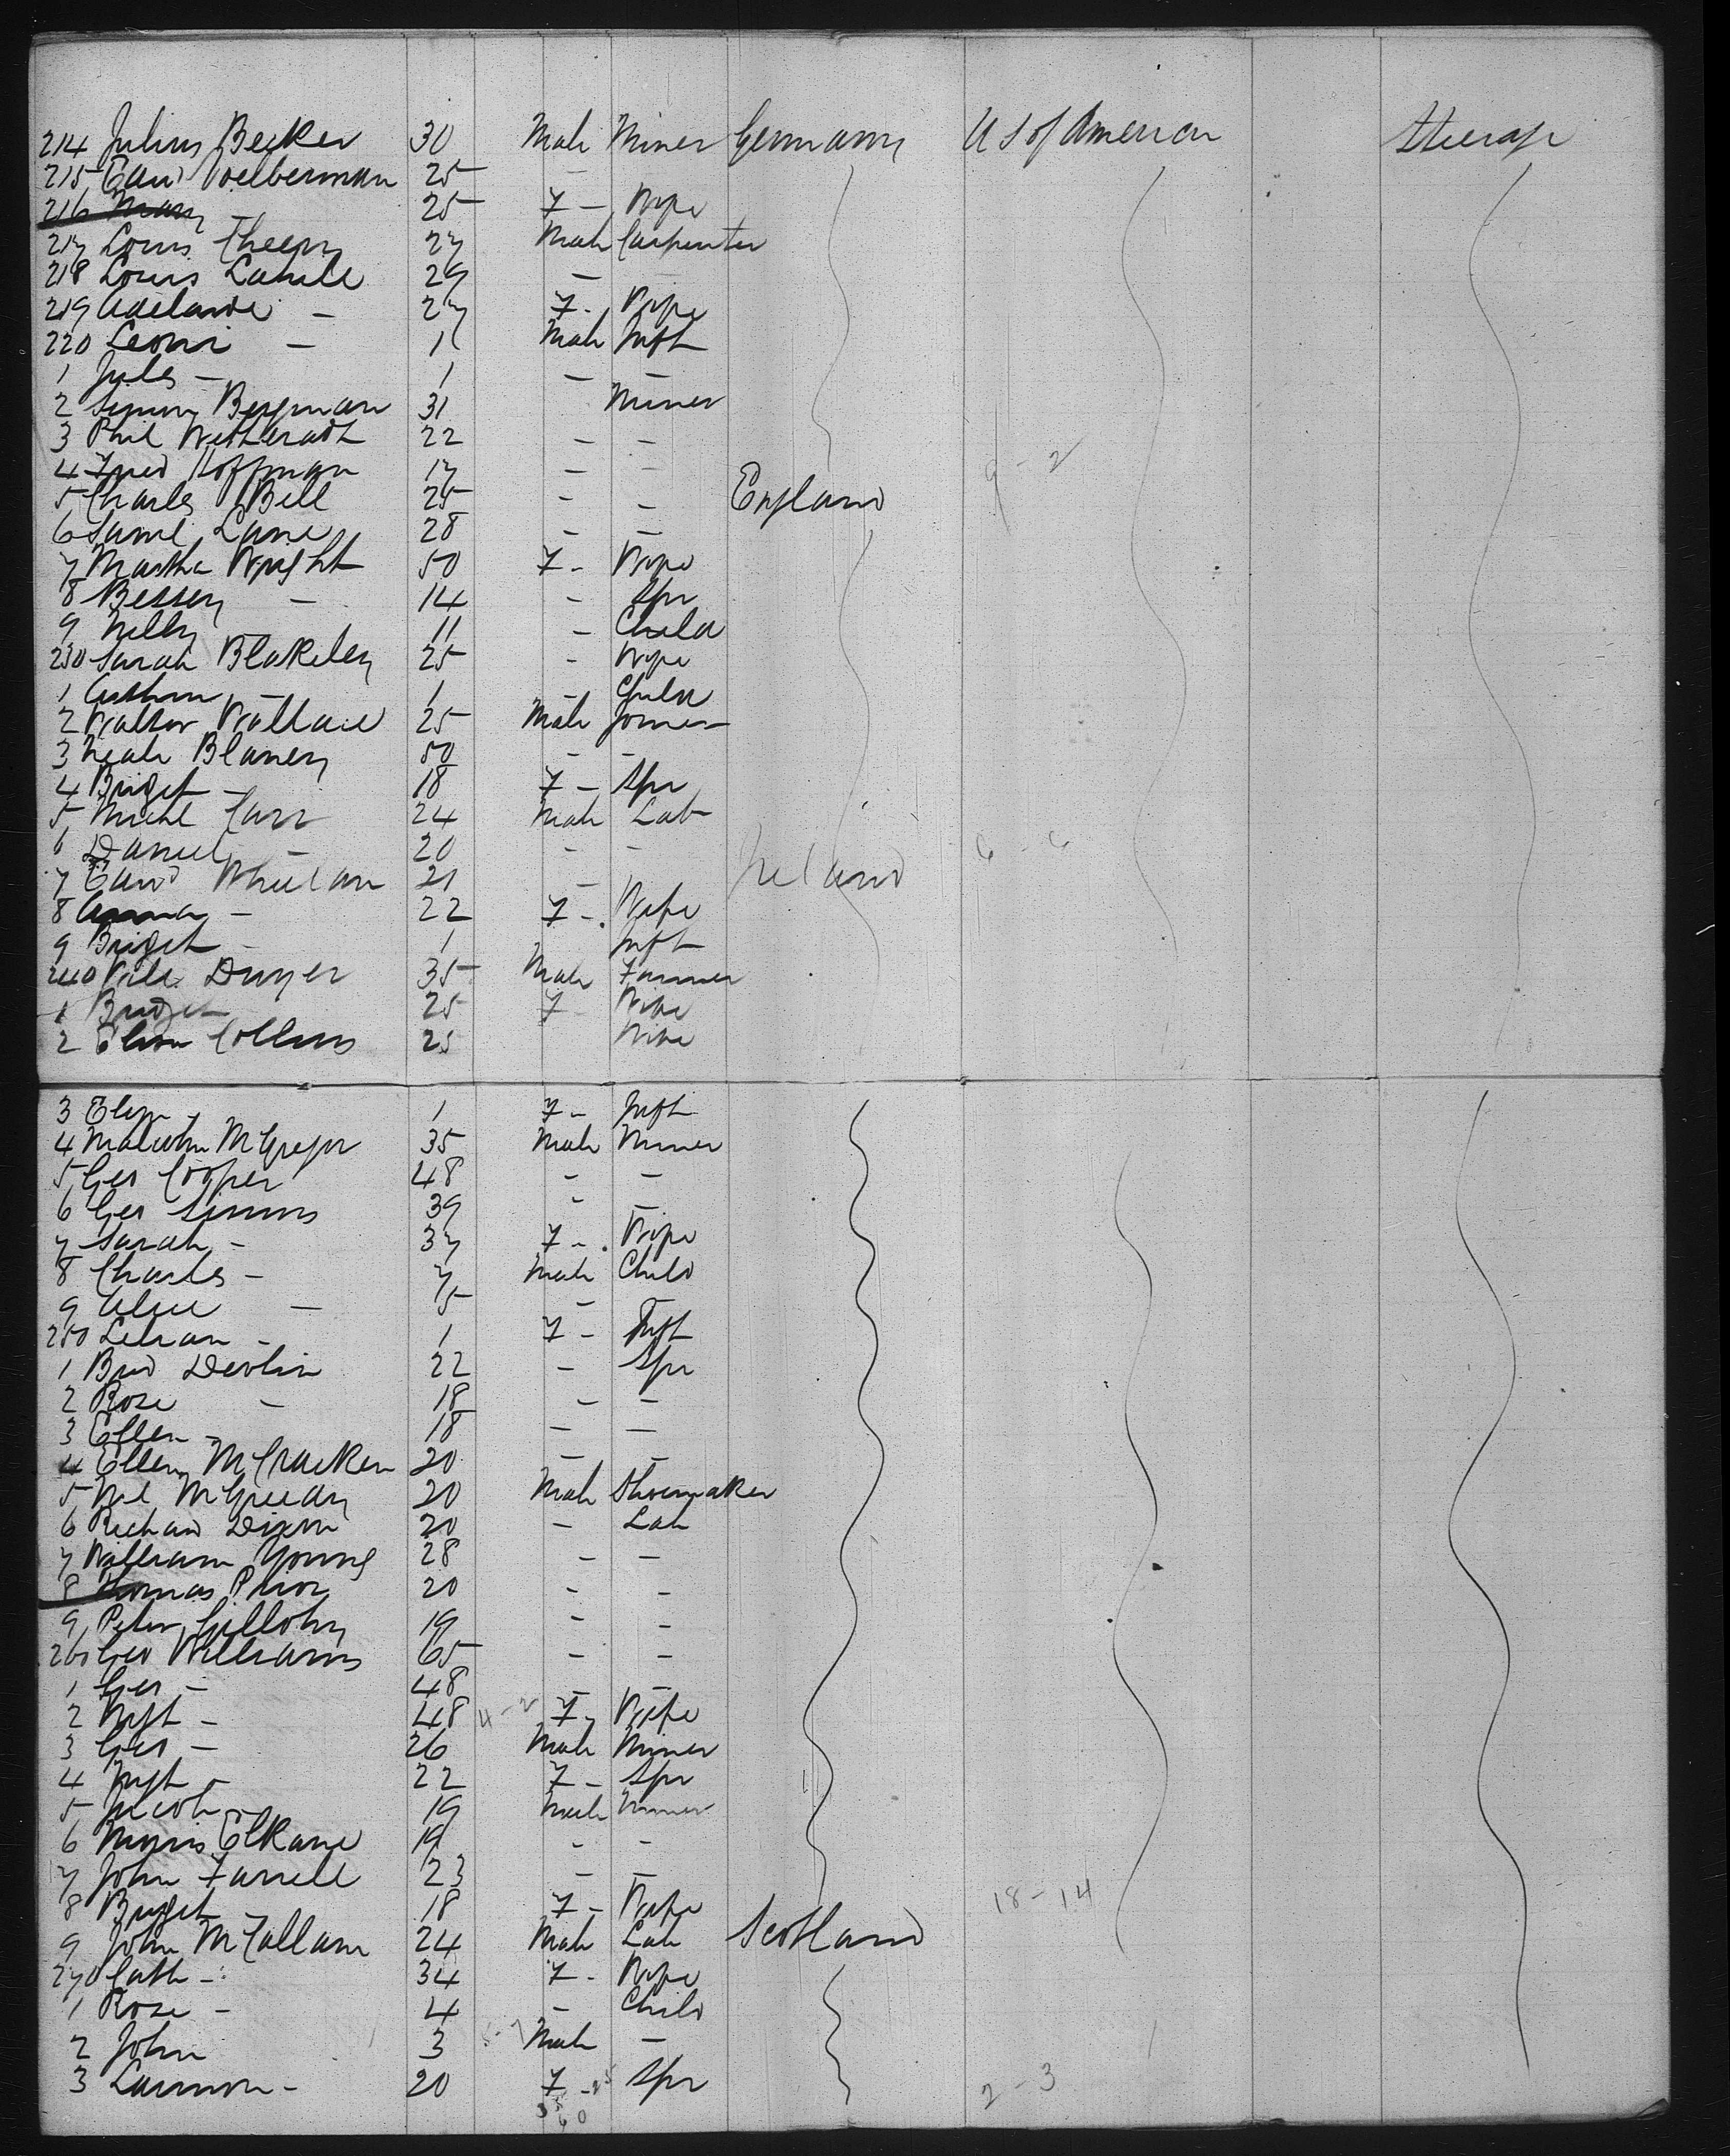 214 Julius Becker 30 Male Miner Germany U S of America Steerage
215 Edwd Voelberman 25 -
216 Mary - 25 F - Wife
217 Louis 27 Male Carpenter
218 Louis 29 - -
219 Adelaide - 27 F - Wife
220 Leoni - 1 Male Inft
1 Jules - 1 - -
2 Bergman 31 Miner
3 Phil 22 - -
4 Fred Hoffman 17 - -
5 Charles Bell 25 - - England
6 Saml Lane 28 - -
7 Martha Wright 50 F - Wife
8 Bessey - 14 - Spr
9 Nelly 11 - Child
230 Sarah Blakeley 25 - Wife
1 Arthur - 1 - Child
2 Walter Wallace 25 Male Joiner
3 Neale Blaney 50 - -
4 Bridget - 18 F - Spr
5 Michl Carr 24 Male Lab
6 Daniel - 20 - -
7 Edwd Whelan 21 - Ireland
8 Anna - 22 F - Wife
9 Bridget - 1 Inft
240 Dwyer 35 Male Farmer
1 Bridget 25 F Wife
2 Collins 25 Wife
3 - 1 F - Inft
4 Malcolm McGregor 35 Male Miner
5 Geo Cooper 48 - -
6 Geo Simms 39 - -
7 Sarah - 37 F - Wife
8 Charles - 7 Male Child
9 Alice - 5 - -
250 Lilian - 1 F - Inft
1 Devlin 22 - Spr
2 Rose - 18 - -
3 Ellen - 18 - -
4 Ellen McCracken 20 - -
5 McGreedy 20 Male Shoemaker
6 Richard Dixon 20 - Lab
7 William Young 28 - -
8 Thomas 20 - -
9 Peter 19 - -
260 Geo Williams 65 - -
1 Geo - 48 - -
2 - 48 4-2 F - Wife
3 Geo - 26 Male Miner
4 - 22 F - Spr
5 Jacob - 19 Male Miner
6 Morris 19 - -
7 John Farrell 23 - -
8 Bridget - 18 F - Wife 18-14
9 John McCallam 24 Male Lab Scotland
270 Cath - 34 F - Wife
1 Rose - 4 - Child
2 John 3 Male -
3 - 20 F - Spr 2-3